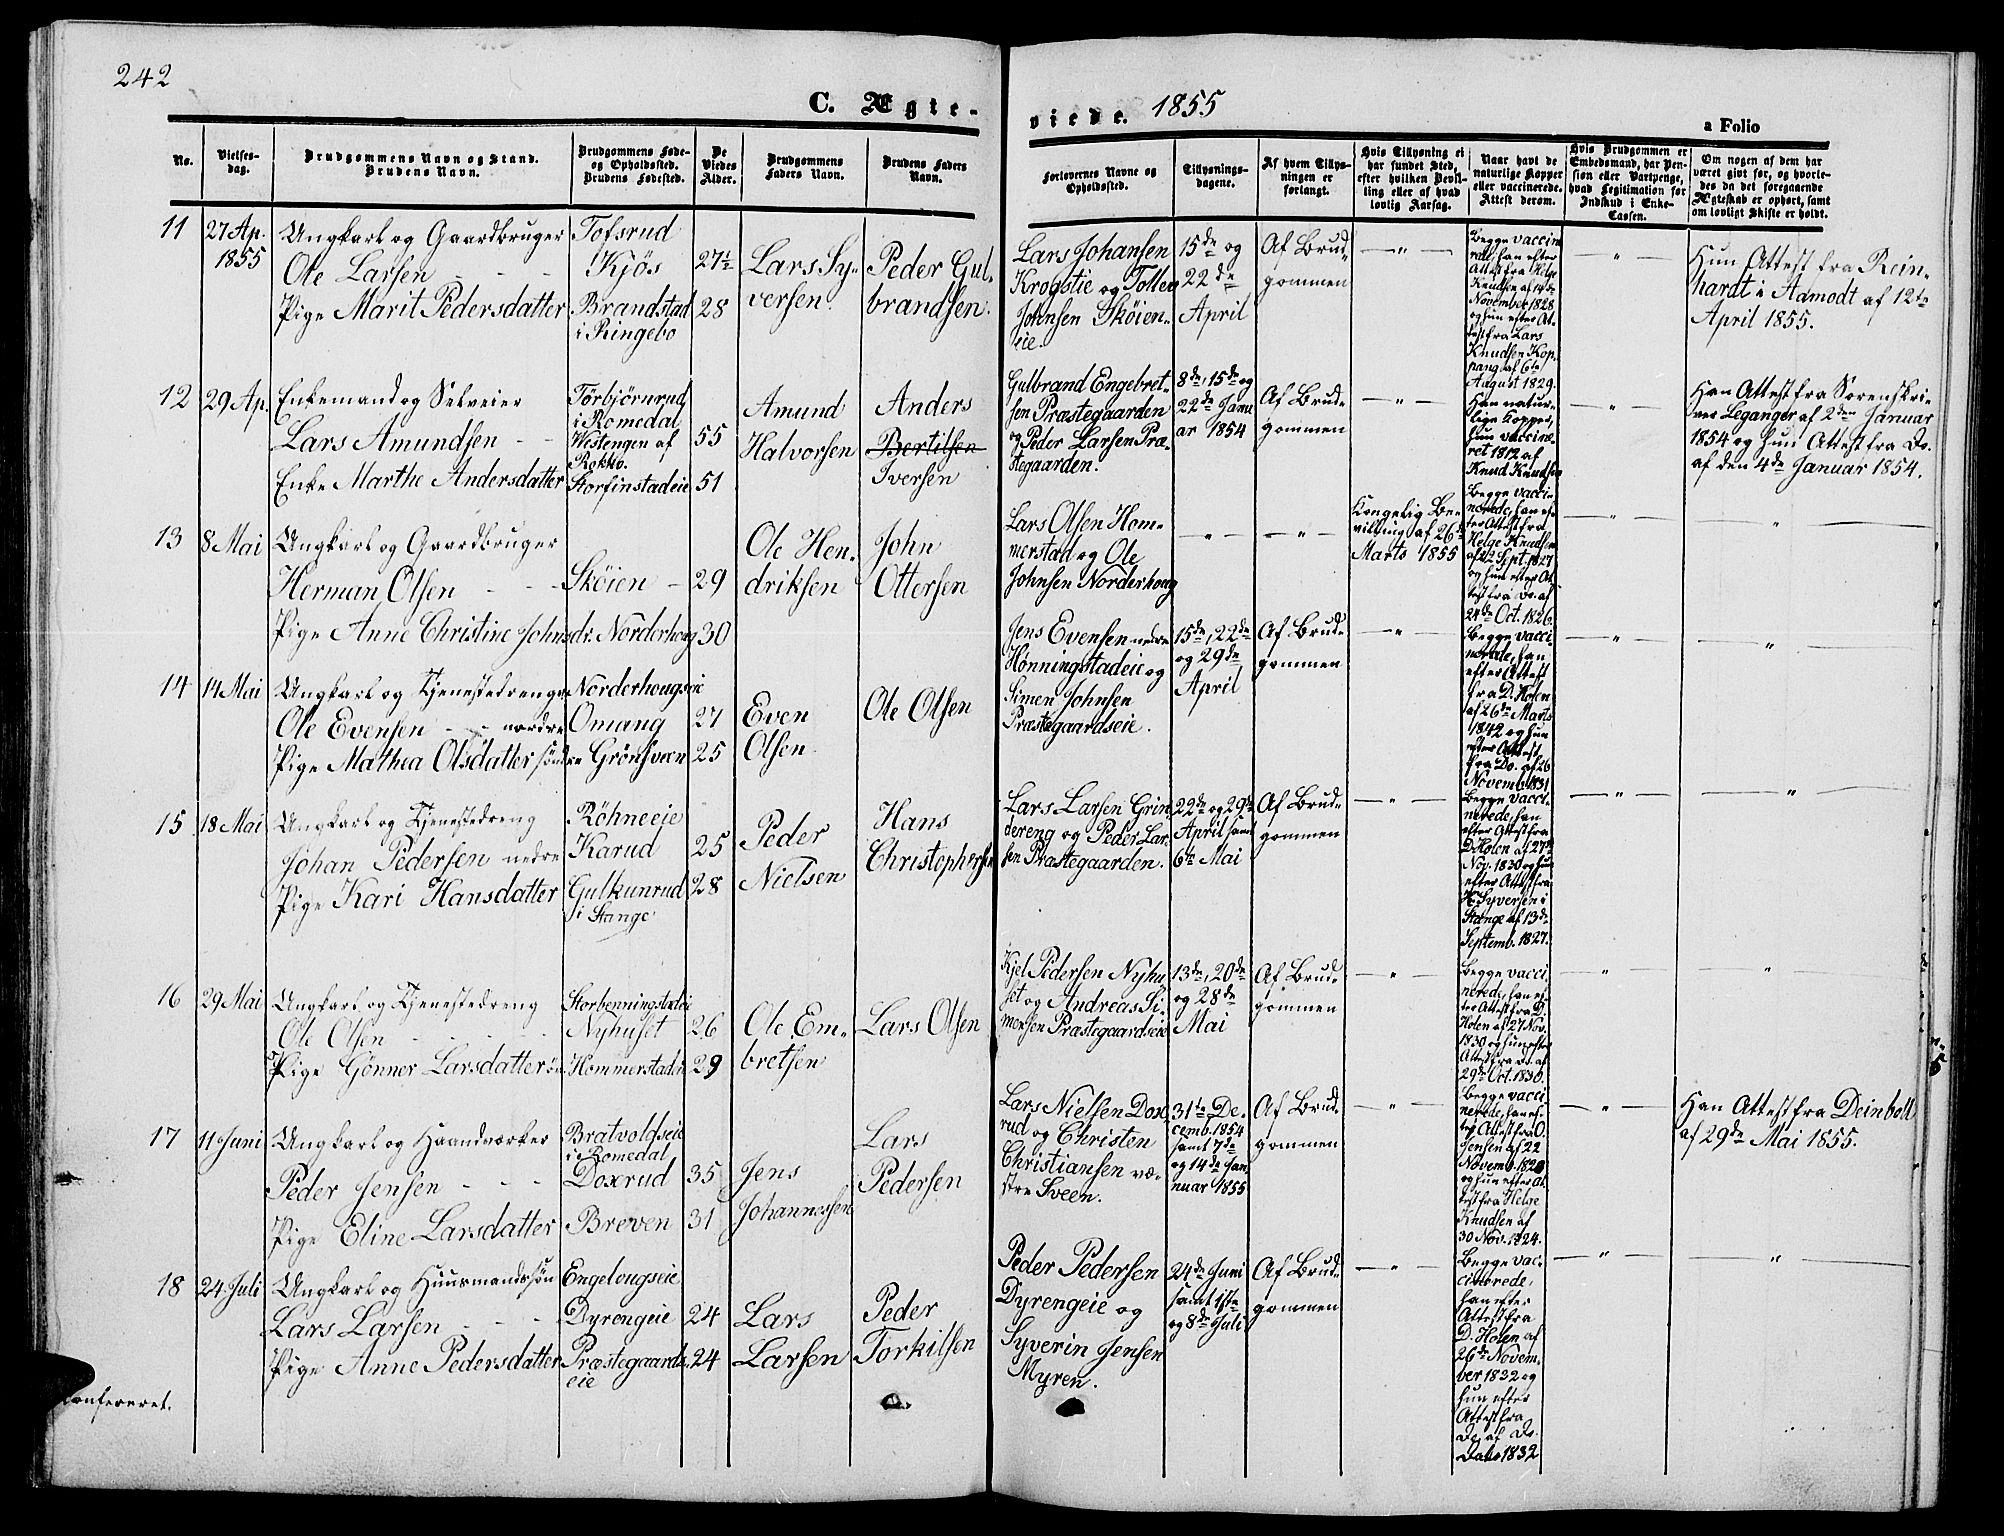 242
C. Ægte-
viede. 1855
a Folio
No.
Vielses-
dag.
Brudgommens Navn og Stand.
Brudens Navn.
Brudgommens Føde-
og Opholdssted.
Brudens Fødested.
De
Viedes
Alder.
Brudgommens
Faders Navn.
Brudens Faders
Navn.
Forlovernes Navne og
Opholdssted.
Tillysnings-
dagene.
Af hvem Tillys-
ningen er
forlangt.
Hvis Tillysning ei
har fundet Sted,
efter hvilken Bevil-
ling eller af hvad
lovlig Aarsag.
Naar havt de
naturlige Kopper
eller vaccinerede.
Attest derom.
Hvis Brudgommen er
Embedsmand, har Pen-
sion eller Vartpenge,
hvad Legitimation for
Indskud i Enke-
Cassen.
Om nogen af dem har
været givt før, og hvorle-
des da det foregaaende
Ægteskab er ophørt, samt
om lovligt Skifte er holdt.
11
27 Ap.
1855
Ungkarl og Gaardbruger
Ole Larsen - - -
Pige Marit Pedersdatter
Tofsrud
Kjøs
Brandstad
i Ringebo
27½
28
Lars Sy-
versen.
Peder Gul-
brandsen.
Lars Johansen
Krogstie og Tollev
Johnsen Skøien-
eie.
15de og
22de
April
Af Brud-
gommen
— " —
Begge vaccine-
rede, han efter
Attest fra Helge
Knudsen af 14de
November 1828
og hun efter At-
test fra Lars
Knudsen Kop-
pang af 6te
August 1829.
— " —
Hun Attest fra Rein-
hardt i Aamodt af 12te
April 1855.
12
29 Ap.
Enkemand og Selveier
Lars Amundsen - -
Enke Marthe Andersdatter
Törbjörnrud
i Romedal
Westengen af
Rokko.
Storfinstadeie
55
51
Amund
Halvorsen
Anders
Bertilsen
Iversen
Gulbrand Engebret-
sen Præstegaarden
og Peder Larsen Præ-
stegaarden.
8de, 15de og
22de Janu
ar 1854
Af Brud-
gommen
— " —
Han natur-
lige Kopper,
hun vaccine-
ret 1812 af
Knud Knudsen
— " —
Han Attest fra Sorenskri-
ver Leganger af 2den Januar
1854 og hun Attest fra Do.
af den 4de Januar 1854.
13
8 Mai
Ungkarl og Gaardbruger
Herman Olsen - - -
Pige Anne Christine Johnsdr.
Skøien -
Norderhoug
29
30
Ole Hen-
driksen
John
Ottersen
Lars Olsen Hom-
merstad og Ole
Johnsen Norderhoug
— " —
— " —
Kongelig Be-
villing af 26de
Marts 1855
Begge vacci-
nerede, han ef-
ter Attest fra
Helge Knudsen
af 22 Sept. 1827
og hun efter At-
test fra Do. af
24de Oct. 1826.
— " —
"
14
14 Mai
Ungkarl og Tjenestedreng
Ole Evensen - - nordre
Pige Mathea Olsdatter søndre
Norderhougseie
Omang
Grönsveen
27
25
Even
Olsen
Ole Olsen
Jens Evensen nedre
Hønningstadeie og
Simen Johnsen
Præstegaardseie.
15de, 22de
og 29de
April
Af Brud-
gommen
— " —
Begge vacci-
nerede, han
efter Attest
fra D. Holen
af 26de Marts
1842 og hun
efter Attest
fra Do. af 26
Novemb. 1831
— " —
"
15
18 Mai
Ungkarl og Tjenestedreng
Johan Pedersen nedre
Pige Kari Hansdatter
Röhneeie
Karud
Gulkunrud
i Stange
25
28
Peder
Nielsen
Hans
Christophersen
Lars Larsen Grin-
dereng og Peder Lar-
sen Præstegaarden.
22de og 29de
April samt
6te Mai
Af Brud-
gommen
— " —
Begge vacci-
nerede, han
efter Attest fra
D. Holen af 27de
Nov. 1830 og hun
efter Attest fra
Syversen i
Stange af 13de
Septemb. 1827.
— " —
"
16
29 Mai
Ungkarl og Tjenestedreng
Ole Olsen - - - -
Pige Gönner Larsdatter
Storbenningstadeie
Nyhuset
Hommerstadeie
26
29
Ole Em-
bretsen
Lars Olsen
Kjel Pedersen Nyhu-
set og Andreas Si-
monsen Præstegaardseie
13de, 20de
og 28de
Mai
Af Brud-
gommen
— " —
Begge vacci
nerede, han ef-
ter Attest fra D.
Holen af 27 Nov.
1830 og hun efter
Attest fra Do. af
29de Oct. 1830.
— " —
"
17
11 Juni
Ungkarl og Haandværker
Peder Jensen - - -
Pige Eline Larsdatter
Bratvoldseie
i Romedal
Doxrud
Breven
35
31
Jens
Johannessen
Lars
Pedersen
Lars Nielsen Dox-
rud og Christen
Christiansen væ-
stre Sveen.
31te De-
cemb. 1854
samt 7de
og 14de Jan
nuar 1855
Af Brud-
gommen
— " —
Begge vacci
nerede, han ef-
ter Attest fra O.
Jensen af 22
Novemb. 1820
og hun efter At-
test fra Helge
Knudsen af
30 Nov. 1824.
— " —
Han Attest fra Deinboll
af 29de Mai 1855.
18
24 Juli
Ungkarl og Huusmandssøn
Lars Larsen - - -
Pige Anne Pedersdatter
Engelougseie
Dyrengeie
Præstegaards-
eie
24
24
Lars
Larsen
Peder
Torkilsen
Peder Pedersen
Dyrengeie og
Syverin Jensen
Myren.
24de Juni
samt 1ste
og 8de Juli
Af Brud-
gommen
— " —
Begge vac-
cinerede,
han efter
Attest fra
D. Holen af
26de Novem-
ber 1832 og
hun efter
Attest fra
Do. af Do.
Dato 1832
— " —
"
Confereret.